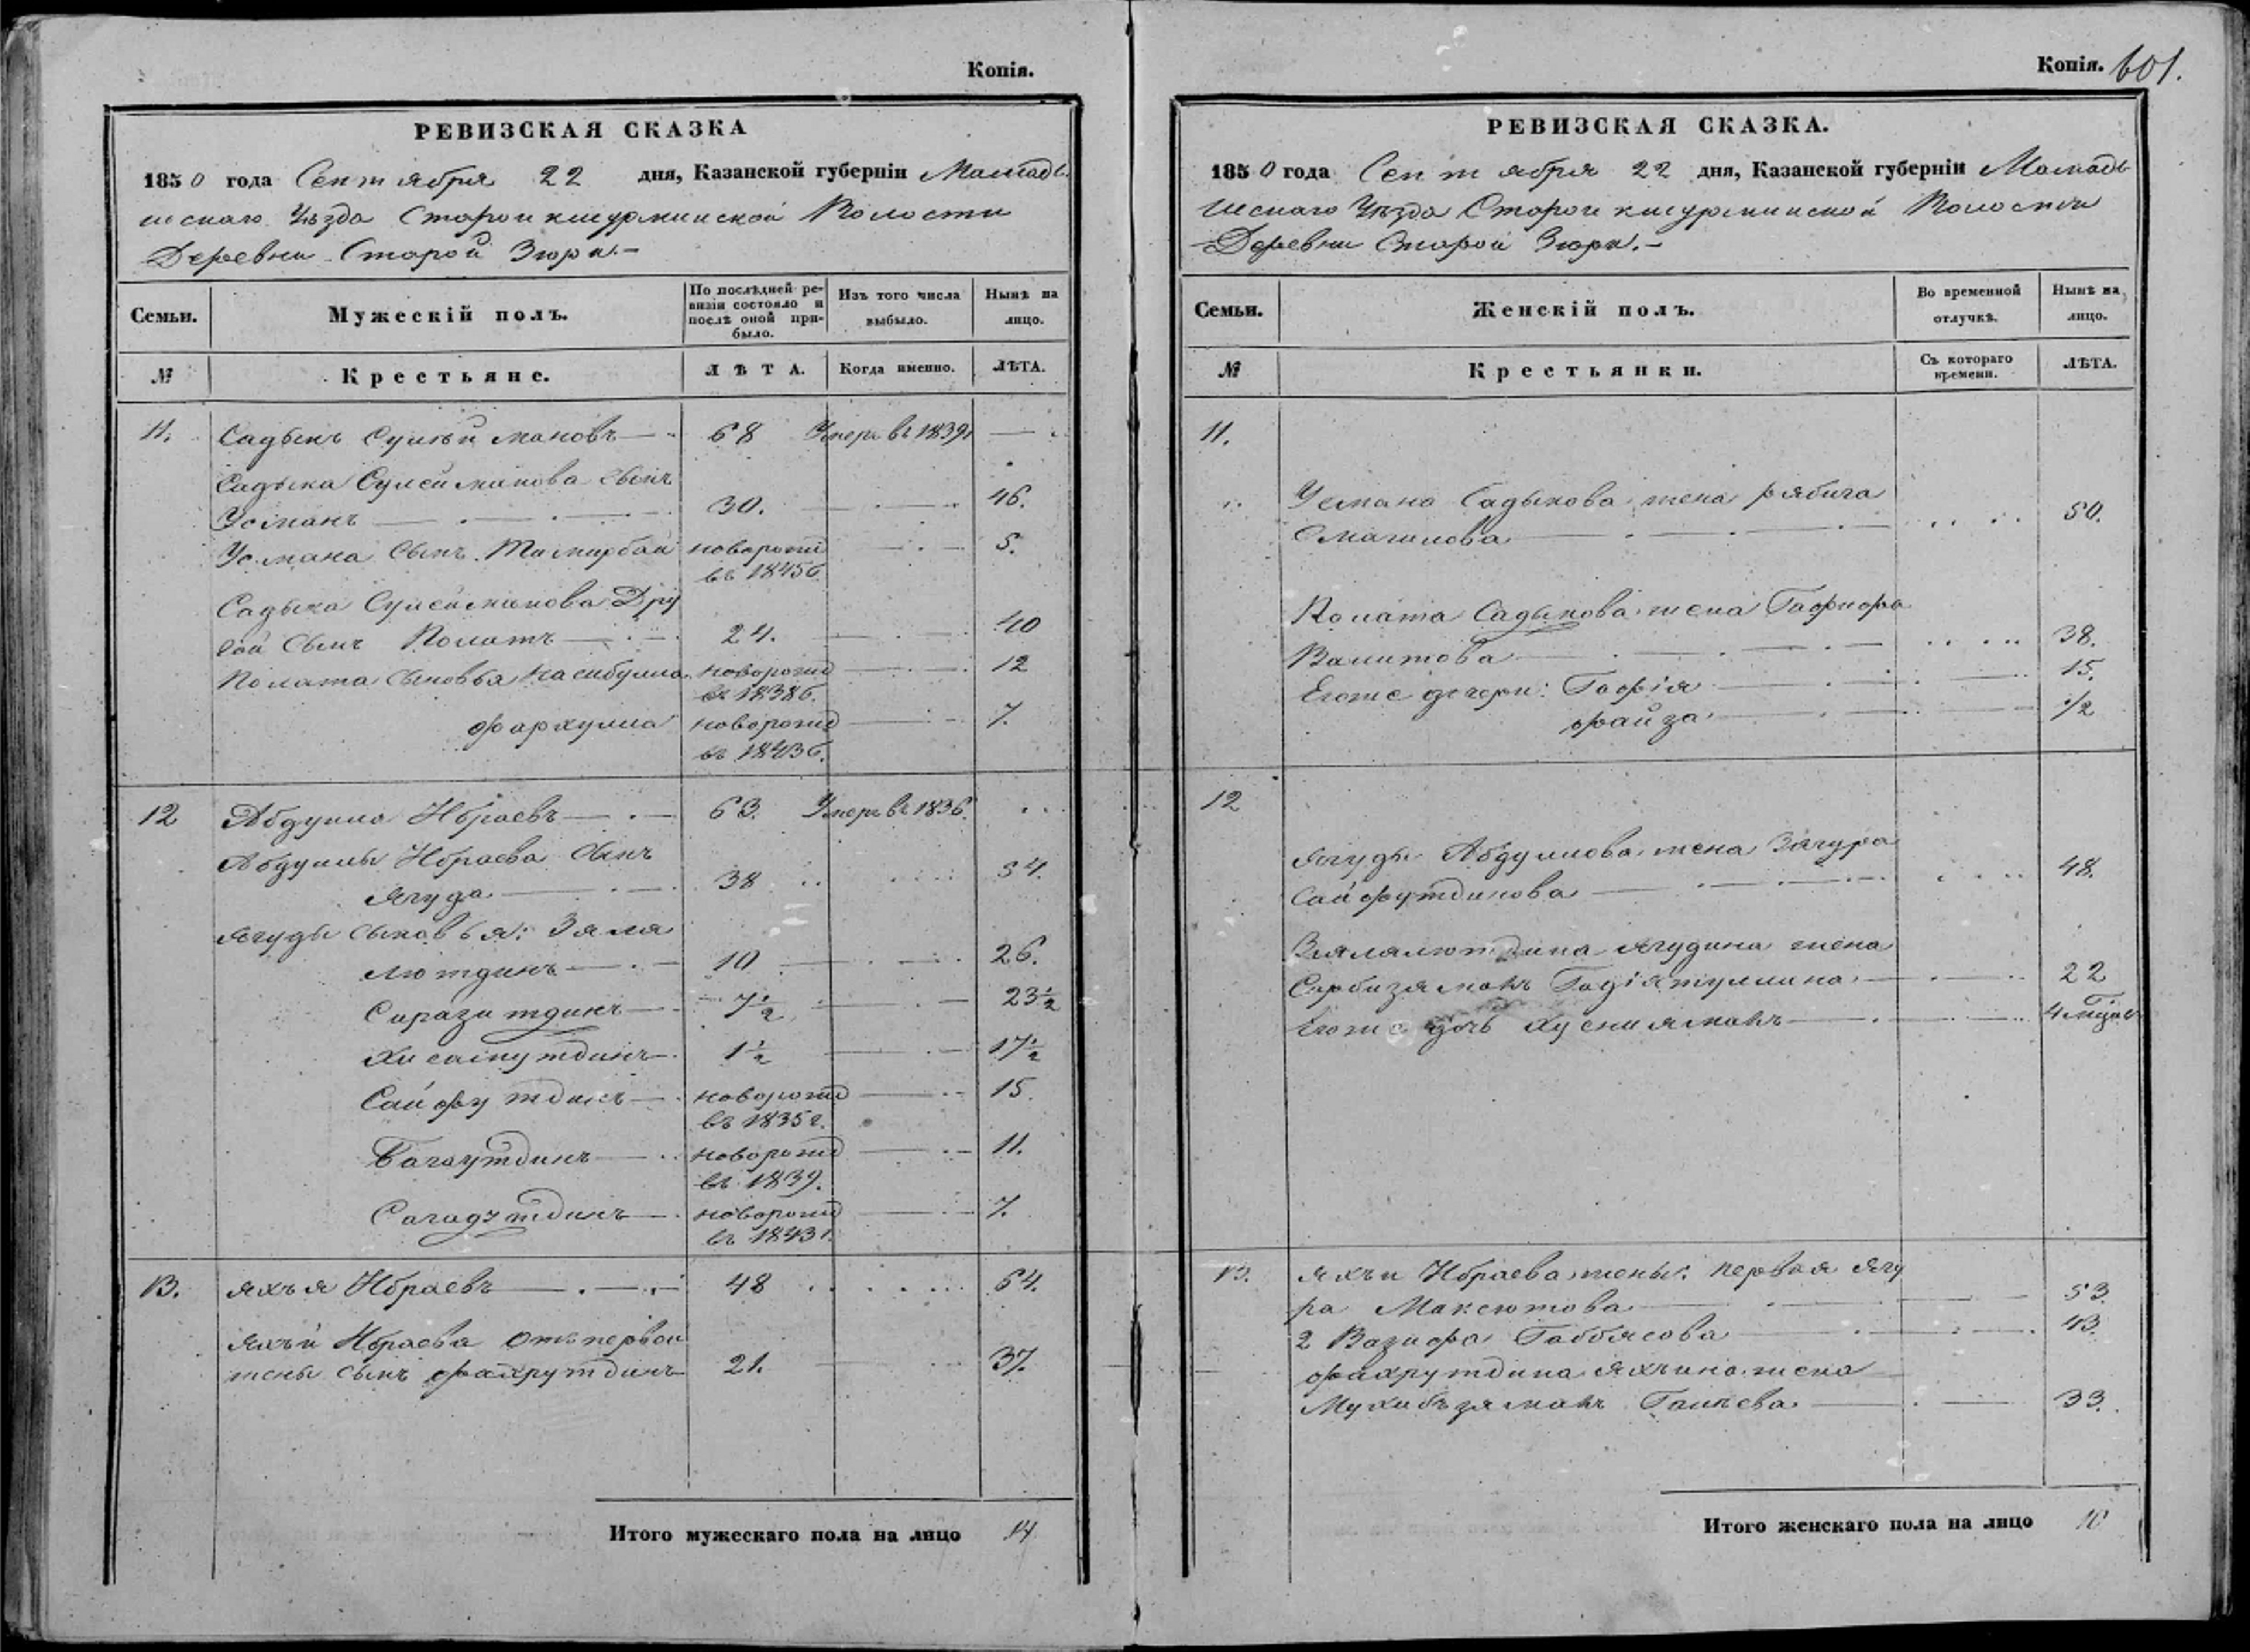 Копія.
РЕВИЗСКАЯ СКАЗКА
1850 года Сентября 22 дня, Казанской губерніи Мамады
шскаго Уѣзда Старой кишурминской Волости
Деревни Старой Зюри.—
Семьи.
Мужескій полъ.
По послѣдней ре-
визіи состояло и
послѣ оной при-
было.
Изъ того числа
выбыло.
Нынѣ на
лицо.
№
Крестьяне.
ЛѢТА.
Когда именно.
ЛѢТА.
11. Садыкъ Сулеймановъ — 68 Умеръ въ 1839 —
Садыка Сулейманова сынъ
Усманъ — 30. — 46.
Усмана сынъ Тимирбай новорожд — 5.
въ 1845
Садыка Сулейманова Дру
гой сынъ Полатъ — 24. — 40
Полата сыновья Насибулла новорожд — 12
въ 1838
Фархулла новорожд — 7.
въ 1843
12 Абдулла Ибраевъ — 63. Умеръ въ 1836. . .
Абдуллы Ибраева сынъ
Ягуда — 38 . . . . . . 54.
Ягуды сыновья: Зяля
лютдинъ — 10 — 26.
Сиразитдинъ — 7½ — 23½
Хисаметдинъ 1½ — 17½
Сайфутдинъ — новорожд — 15.
въ 1835 г.
Багаутдинъ — новорожд — 11.
въ 1839.
Сагадутдинъ — новорожд — 7.
въ 1843 г.
13. Яхъя Ибраевъ — 48 . . . . . . 64.
Яхъи Ибраева отъ первой
жены сынъ Фахрутдинъ 21. — 37.
Итого мужескаго пола на лицо 14
Копія. 601.
РЕВИЗСКАЯ СКАЗКА.
1850 года Сентября 22 дня, Казанской губерніи Мамады
шскаго Уѣзда Старой кишурминской Волости
Деревни Старой Зюри.—
Семьи.
Женскій полъ.
Во временной
отлучкѣ.
Нынѣ на
лицо.
№
Крестьянки.
Съ котораго
времени.
ЛѢТА.
11.
Усмана Садыкова жена Рябига
Смагилова — . . . . 50.
Полата Садыкова жена Гафифа
Валитова — . . . . 38.
Егоже дочери: Гафія — 15.
Файза — 1/2
12
Ягуды Абдуллова жена Загура
Сайфутдинова — . . . . 48.
Зялялютдина Ягудина жена
Сарбизямалъ Гадіятуллина — 22
Егоже дочь Хуснизямалъ — 4 мѣсяц
13. Яхъи Ибраева жены: первая Ягу
ра Максютова — 53.
2 Вазифа Габбясова — 43.
Фахрутдина Яхъина жена
Мухибъзямалъ — 33.
Итого женскаго пола на лицо 10